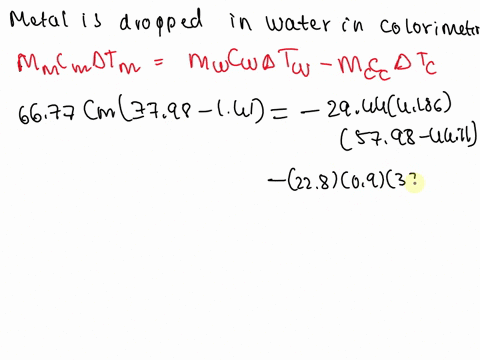 Metal is dropped in water in colorimeter
MmCmΔTm = mwCwΔTw - mcCcΔTc
66.77 Cm(77.98-1.41) = - 29.44(4.186)
(57.98-44.71)
-(22.8)(0.9)(3?